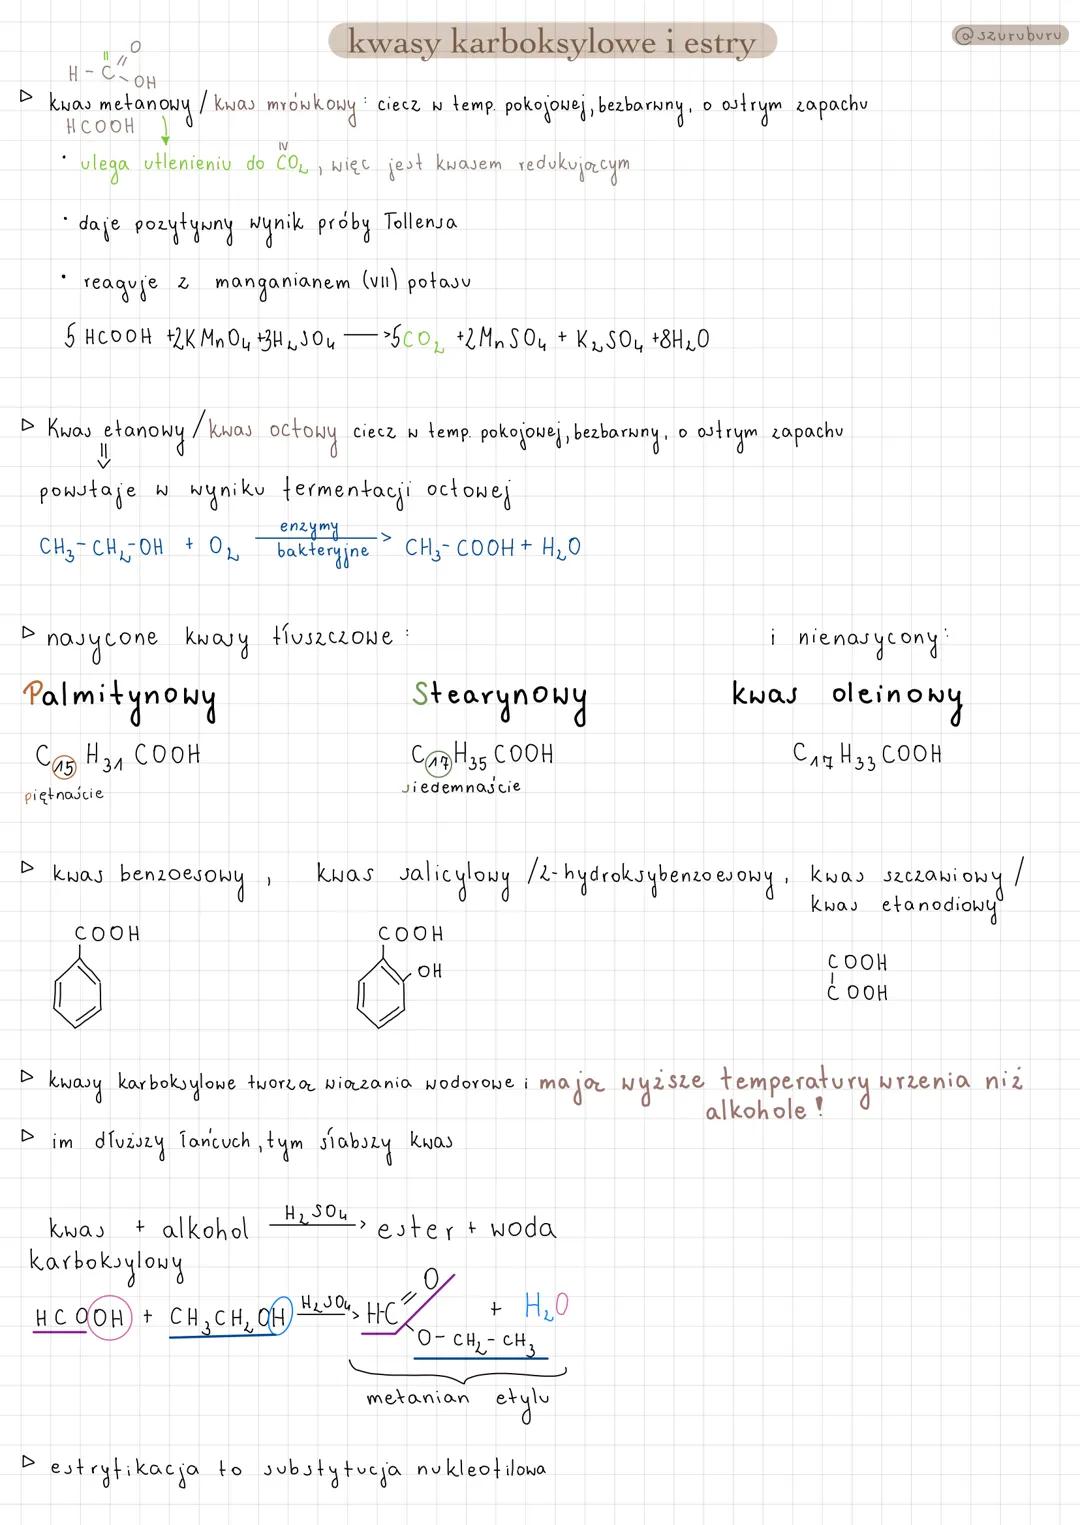 kwasy karboksylowe i estry
@szuruburu
II
O
H - C
OH
▷ kwas metanowy / kwas mrówkowy : ciecz w temp. pokojowej, bezbarwny, o ostrym zapachu
HCOOH
IV
• ulega utlenieniu do CO₂, więc jest kwasem redukującym
• daje pozytywny wynik próby Tollensa
• reaguje z manganianem (VII) potasu
5 HCOOH +2KMnO₄ +3H₂SO₄ —> 5CO₂ +2MnSO₄ + K₂SO₄ +8H₂O
▷ Kwas etanowy / kwas octowy ciecz w temp. pokojowej, bezbarwny, o ostrym zapachu
powstaje w wyniku fermentacji octowej
enzymy
CH₃-CH₂-OH + O₂ —> CH₃-COOH + H₂O
bakteryjne
▷ nasycone kwasy tłuszczowe : i nienasycony:
Palmitynowy Stearynowy kwas oleinowy
C₁₅H₃₁COOH C₁₇H₃₅COOH C₁₇H₃₃COOH
piętnaście siedemnaście
▷ kwas benzoesowy, kwas salicylowy /2-hydroksybenzoesowy, kwas szczawiowy /
kwas etanodiowy
COOH COOH COOH
OH COOH
▷ kwasy karboksylowe tworzą wiązania wodorowe i mają wyższe temperatury wrzenia niż
alkohole!
▷ im dłuższy łańcuch, tym słabszy kwas
H₂SO₄
kwas + alkohol —> ester + woda
karboksylowy
HCOOH + CH₃CH₂OH H₂SO₄ —> H-C O + H₂O
O-CH₂-CH₃
metanian etylu
▷ estryfikacja to substytucja nukleofilowa